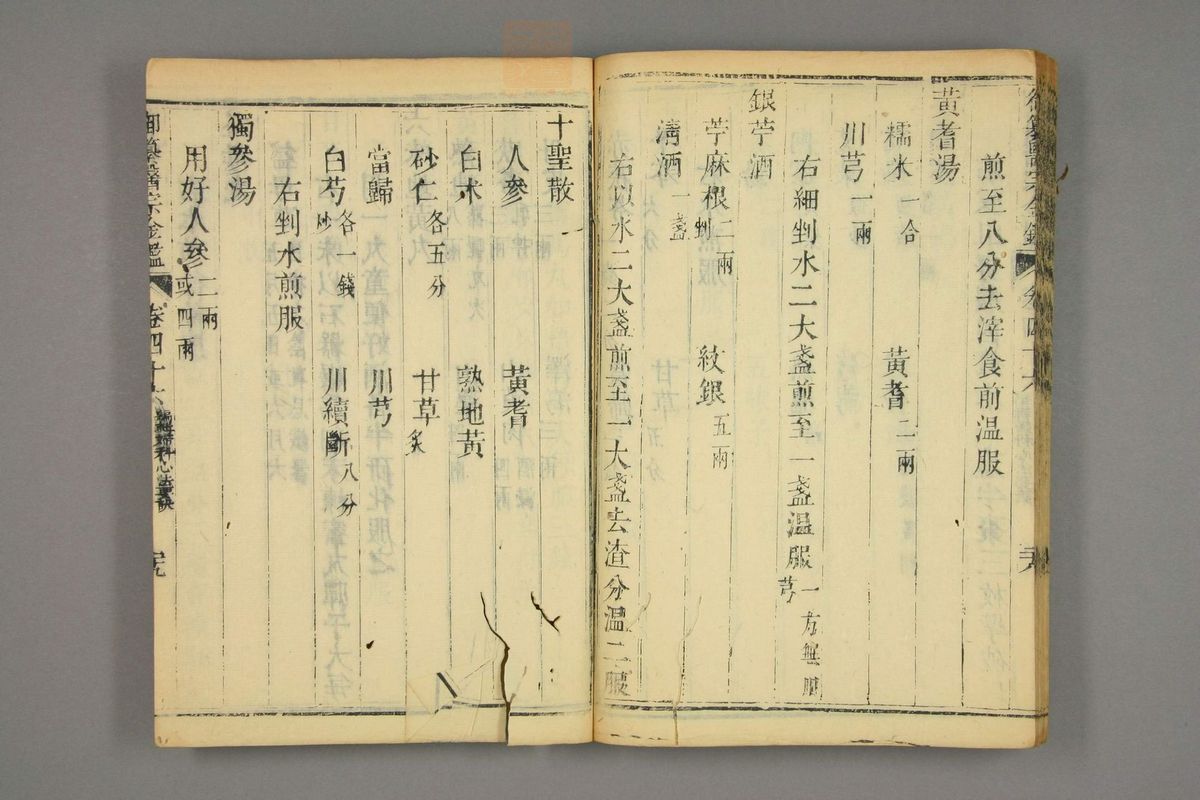 煎至八分去滓食前溫服
黃耆湯
糯米一合 黃耆二兩
川芎一兩
右細剉水二大盞煎至一盞溫服一方無川芎
銀苧酒
苧麻根二兩剉 紋銀五兩
清酒一盞
右以水二大盞煎至一大盞去渣分溫二服
十聖散
人參 黃耆
白朮 熟地黃
砂仁各五分 甘草炙
當歸 川芎
白芍炒各一錢 川續斷八分
右剉水煎服
獨參湯
用好人參二兩或四兩
御纂醫宗金鑑 卷四十六 編輯婦科心法要訣